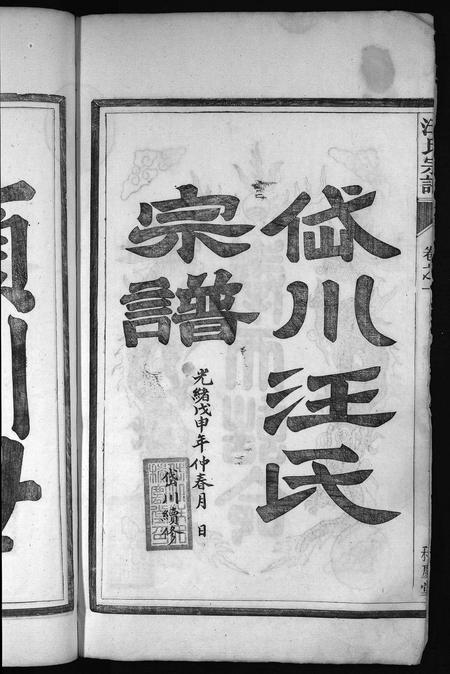 岱川汪氏
宗譜
光緒戊申年仲春月 日
岱川續修
汪氏宗譜
卷之一